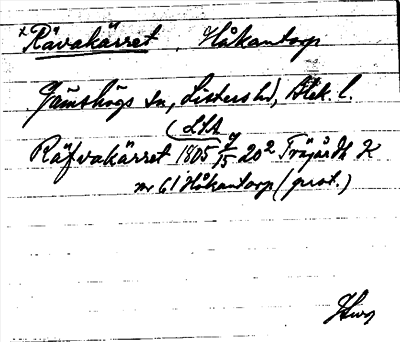 x Rävakärret, Håkantorp
Jämshögs sn, Listers hd, Blek. l.
(LSA
Räfvakärret 1805 9/15 20² Träjärdh K
nr 61 Håkantorp (prot.)